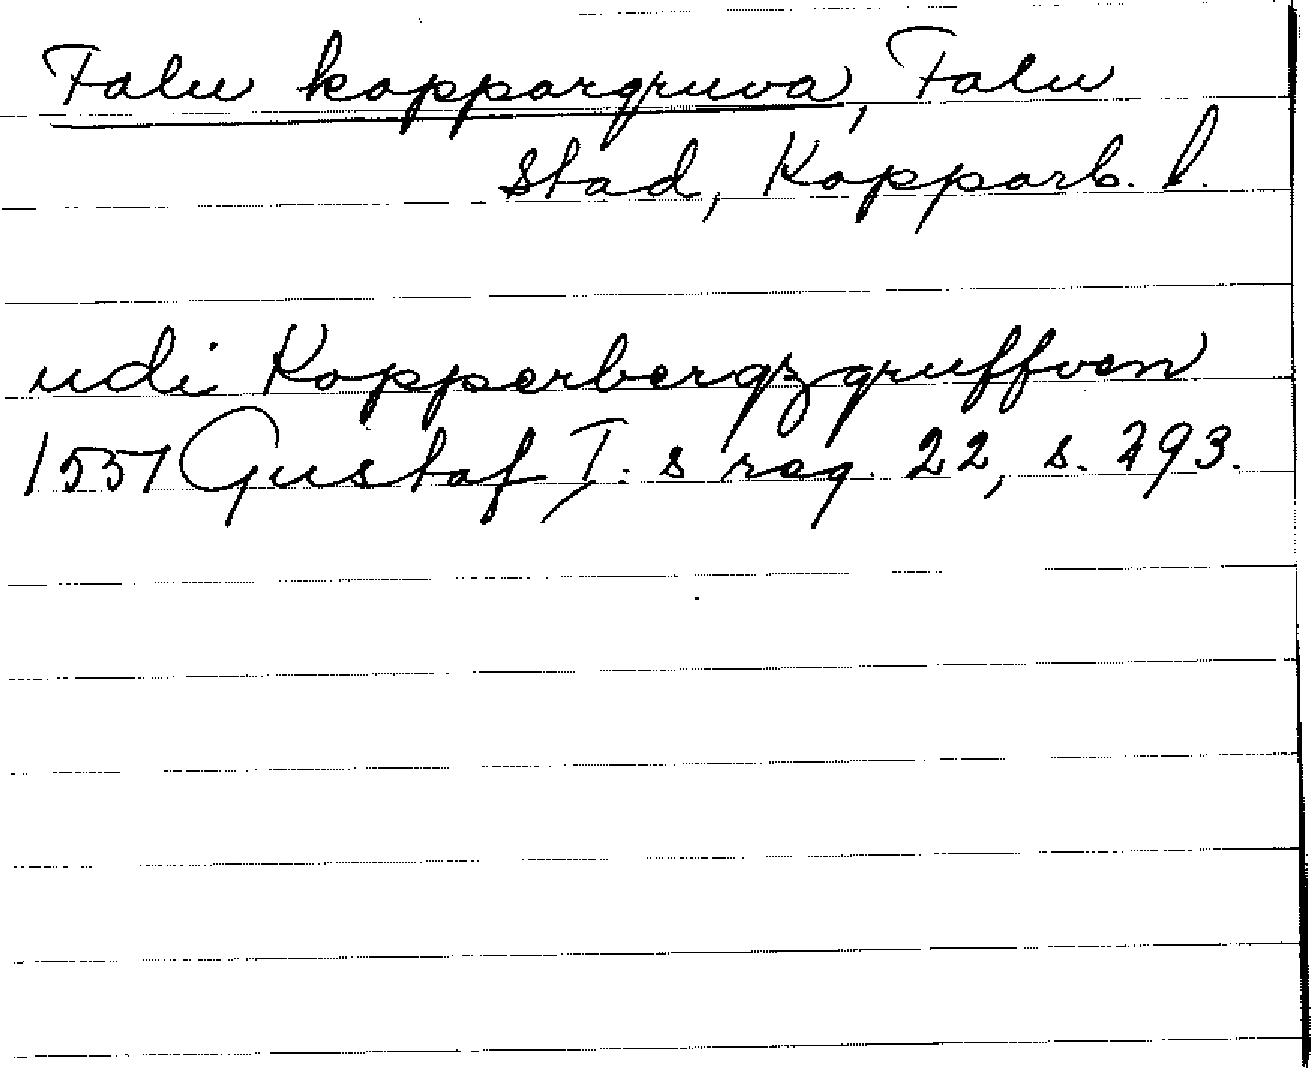 Falu koppargruva, Falu
stad, Kopparb. l.
udi Kopperbergzgruffven
1551 Gustaf I:s reg. 22, s. 293.